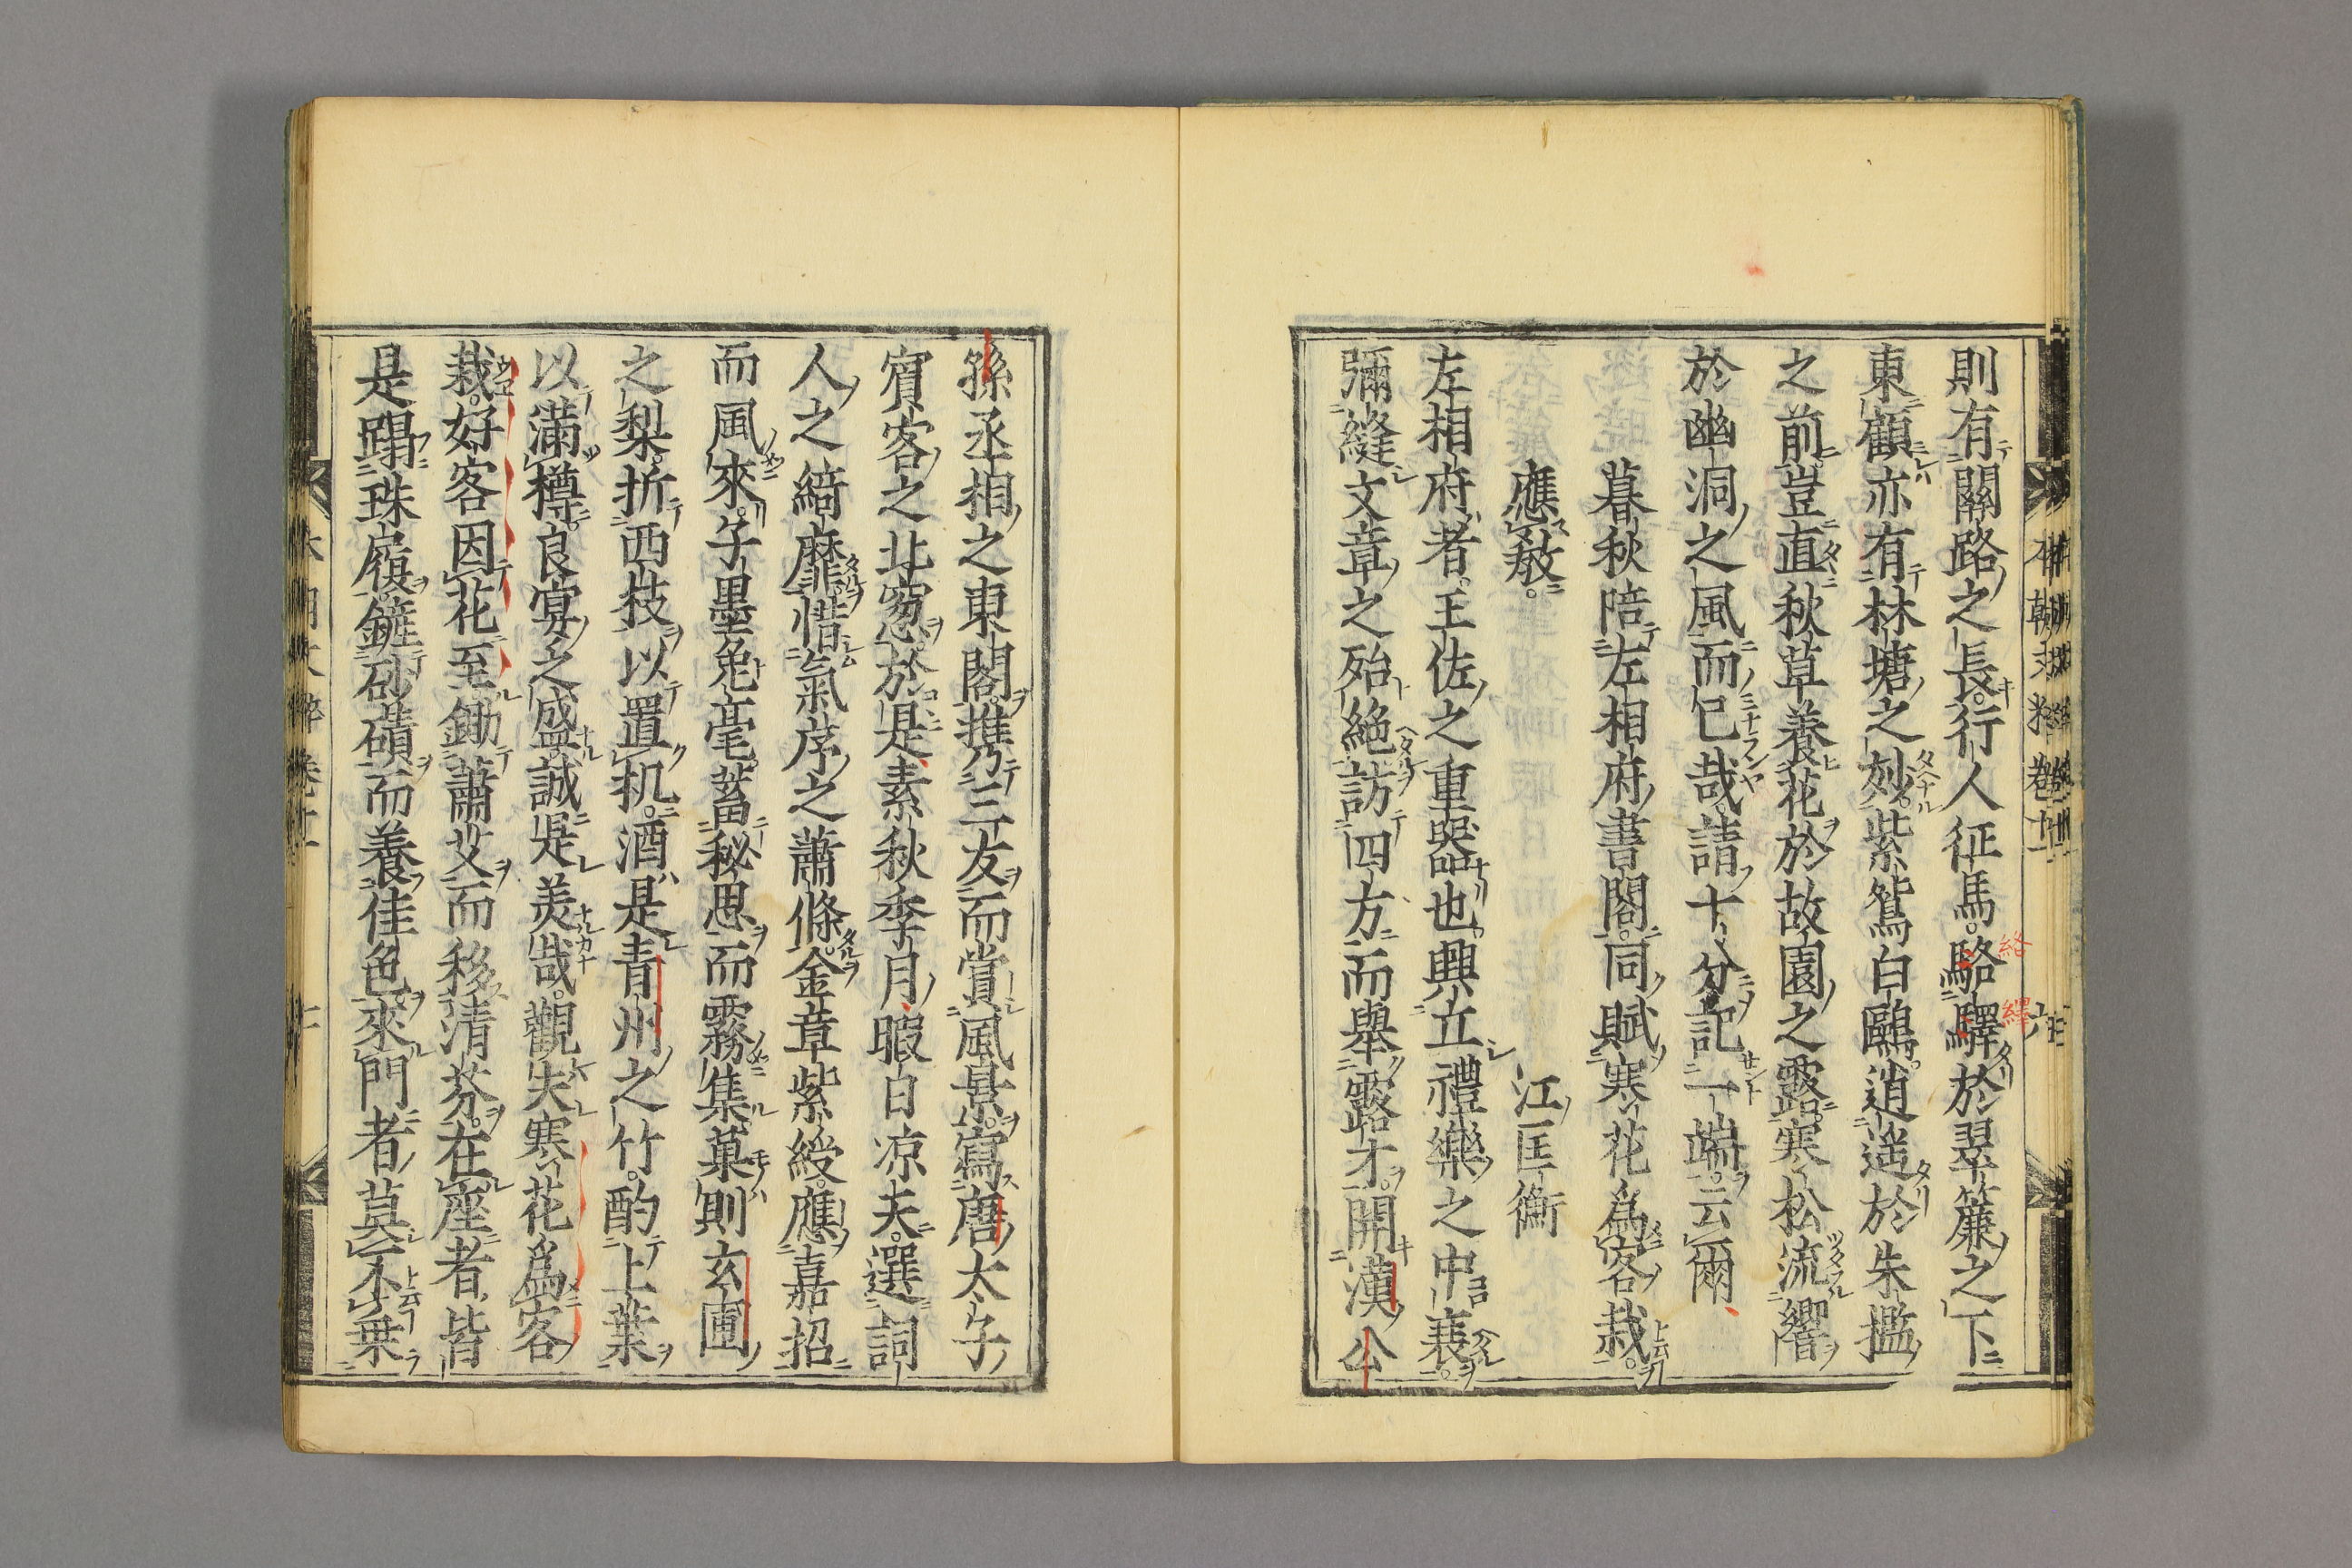 則有關路之長。行人征馬。駱驛於翠簾之下
東顧亦有林塘之妙。紫鴛白鷗。逍遥於朱檻
之前。豈直秋草養花於故園之露。寒松流響
於幽洞之風而已哉。請十分記一端。云爾
暮秋陪左相府書閣。同賦寒花爲客栽。
應敎。
江匡衡
左相府者。王佐之重器也。興立禮樂之中衰。
彌縫文章之殆絶。訪四方而舉露才。開漢公
孫丞相之東閣。携三友而賞風景。寫唐太子
賓客之北窓。於是素秋季月。暇日凉夫。選詞
人之綺靡。惜氣序之蕭條。金章紫綬。應嘉招
而風來。子墨兔毫。蓄秘思而霧集。菓則玄圃
之梨。折西枝以置机。酒是青州之竹。酌上葉
以滿樽。良宴之盛。誠是美哉。觀夫寒花爲客
栽。好客因花至。鋤蕭艾而移清芬。在座者皆
是躡珠履。鏟砂磧而養佳色。來門者莫不乗
本朝文粹卷十一
絡
繹